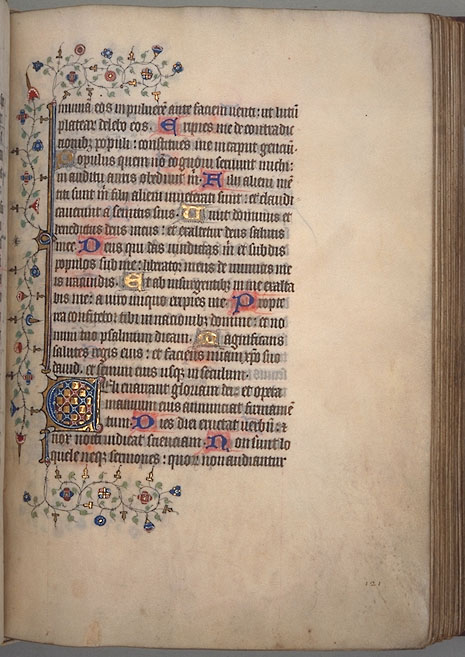 minuā eos ut pulverē ante faciem venti: ut lutū
platear̄ delebo eos. Eripies me de contradic
tionibz populi: constitues me in caput gentiū.
Populus quem nō cognovi servivit michi:
in auditu auris obedivit m̄. Filii alieni mē
titi sunt m̄ filii alieni inveterati sunt: et claudi
caverunt a semitis suis. Vivit dominus et
benedictus deus meus: et exaltetur deus salutis
mee. Deus qui das vindictas m̄ et subdis
populos sub me: liberator meus de inimicis me
is iracundis. Et ab insurgentibz in me exalta
bis me: a viro iniquo eripies me. Propte
rea confitebor tibi in nacionibz domine: et no
mini tuo psalmum dicam. Magnificans
salutes regis eius: et faciens miām xp̄o suo
david. et semini eius usqz in seculum.
Celi enarrant gloriam dei: et opera
manuum eius annunciat firmamē
tum. Dies diei eructat verbū: &
nox nocti indicat scienciam. Non sunt lo
quele neqz sermones: quor̄ non audiantur
121